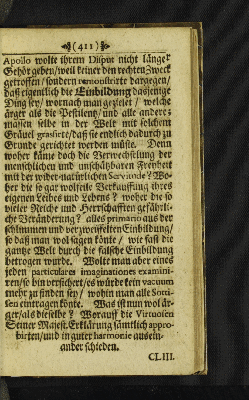 (411)
Apollo wolte ihrem Disput nicht länger
Gehör geben/ weil keiner den rechten Zweck
getroffen/ sondern remonstrirte dargegen/
daß eigentlich die Einbildung dasjenige
Ding sey/ wornach man gezielet/ welche
ärger als die Pestilentz/ und alle andere
massen selbe in der Welt mit solchem
Gräuel grassirte/ daß sie endlich dadurch zu
Grunde gerichtet werden müste. Denn
woher käme doch die Verwechslung der
menschlichen und unschätzbaren Freyheit
mit der wider-natürlichen Servitude? Wo-
her die so gar wolfeile Verkauffung ihres
eigenen Leibes und Lebens? woher die so
vieler Reiche und Herrschafften gefährli-
che Veränderung? alles primario aus der
schlimmen und verzweiffelten Einbildung/
so daß man wol sagen könte/ wie daß die
gantze Welt durch die falsche Einbildung
betrogen wurde. Wolte man aber eines
jeden particulares imaginationes examini-
ren/ so bin versichert/ es würde kein vacuum
mehr zu finden sey/ wohin man alle Sotti-
sen eintragen könte. Was ist nun wol är-
ger/ als dieselbe? Worauff die Virtuosen
Seiner Majest. Erklärung sämtlich appro-
birten/ und in guter harmonie ausein-
ander schieden.
CLIII.